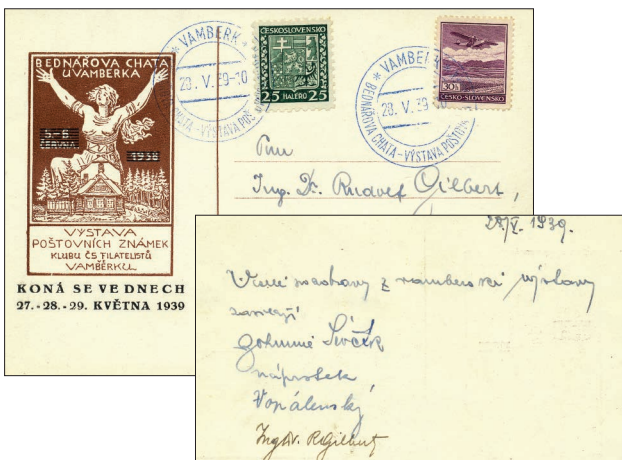 BEDNÁŘOVA CHATA
U VAMBERKA
5.-6.
ČERVNA
1938
VÝSTAVA
POŠTOVNÍCH ZNÁMEK
KLUBU ČS. FILATELISTŮ
VAMBERKU
KONÁ SE VE DNECH
27.-28.-29. KVĚTNA 1939
* VAMBERK
28. V. 39-10
CHATA-VÝSTAVA POŠT
ČESKOSLOVENSKO
25 HALÉŘŮ 25
* VAMBERK
28. V. 39-10
BEDNÁŘOVA CHATA-VÝSTAVA POŠTOV
30h
ČESKO-SLOVENSKO
Pan
Ing. Dr. Rudolf Gilbert,
28/V. 1939.
z výstavy
Náprstek
Vonálenský
Ing Dr. R Gilbert